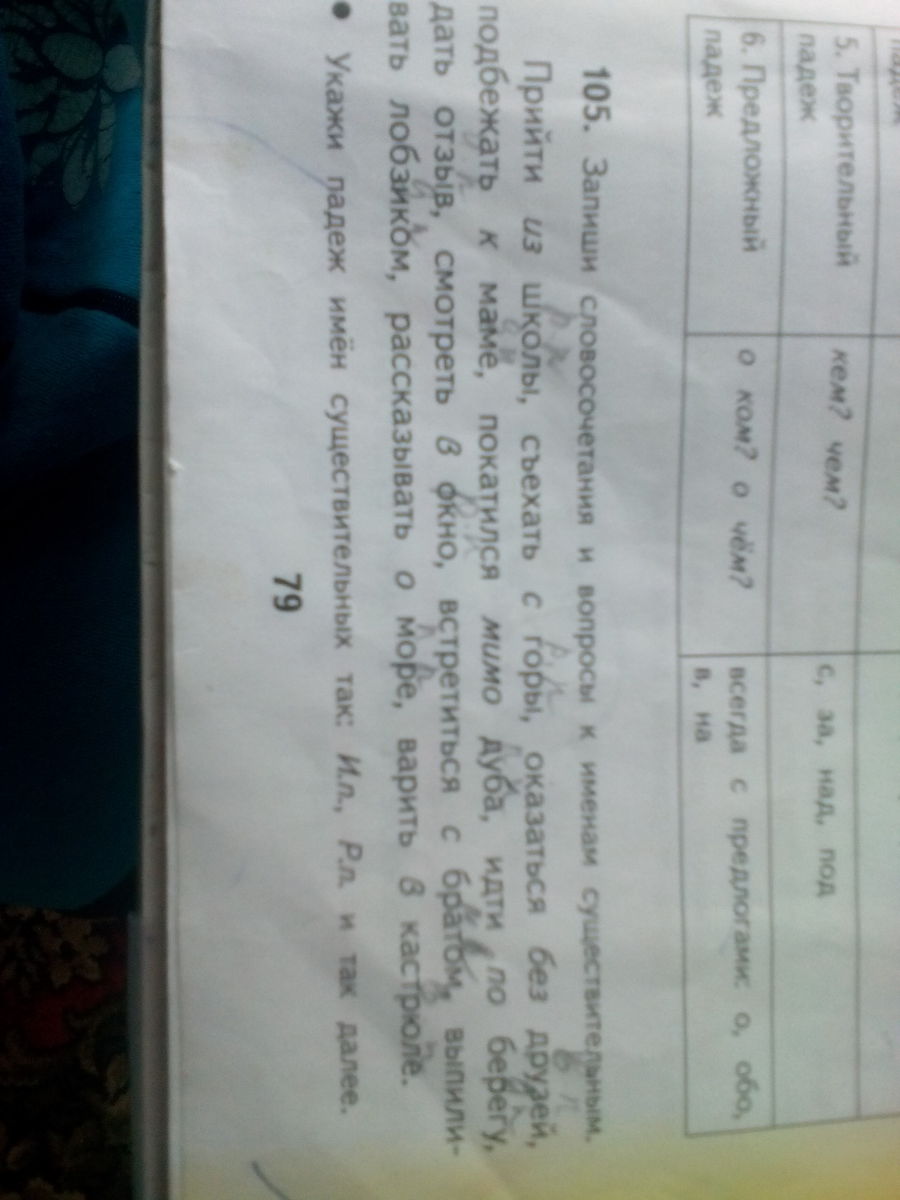 падеж
5. Творительный падеж кем? чем? с, за, над, под
6. Предложный падеж о ком? о чём? всегда с предлогами: о, обо, в, на
105. Запиши словосочетания и вопросы к именам существительным.
Прийти из школы, съехать с горы, оказаться без друзей,
подбежать к маме, покатился мимо дуба, идти по берегу,
дать отзыв, смотреть в окно, встретиться с братом, выпили-
вать лобзиком, рассказывать о море, варить в кастрюле.
• Укажи падеж имён существительных так: И.п., Р.п. и так далее.
79